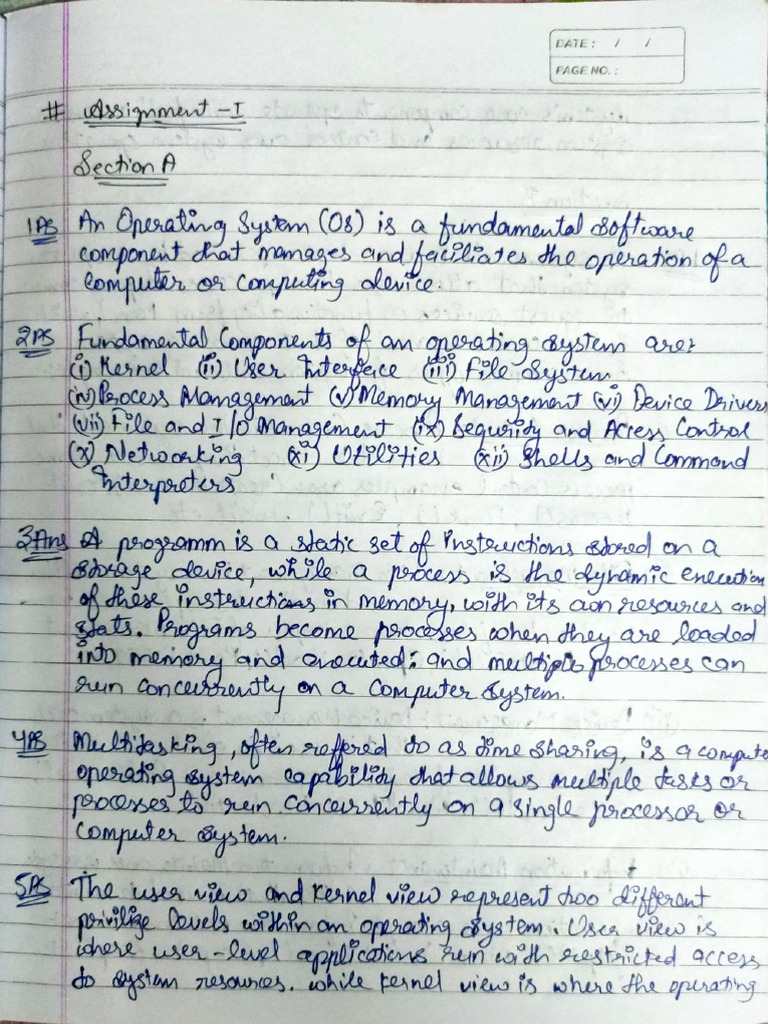 DATE: / /
PAGE NO.:
# Assignment - I
Section A
1AS An Operating System (OS) is a fundamental software
component that manages and faciliates the operation of a
computer or computing device.
2AS Fundamental Components of an operating system are:
(i) Kernel (ii) User Interface (iii) File System
(iv) Process Management (v) Memory Management (vi) Device Drivers
(vii) File and I/O Management (ix) Sequrity and Access Control
(x) Networking (xi) Utilities (xii) Shells and Command
Interpreters
3Ans A programm is a static set of Instructions stored on a
storage device, while a process is the dynamic execution
of these instructions in memory, with its own resources and
stats. Programs become processes when they are loaded
into memory and executed; and multiple processes can
run concurrently on a computer system.
4AS Multitasking, often reffered to as time sharing, is a compute
operating system capability that allows multiple tasks or
processes to run concurrently on a single processor or
computer system.
5AS The user view and kernel view represent two different
privilige levels within an operating system. User view is
where user-level applications run with restricted access
to system resources. while kernel view is where the operating